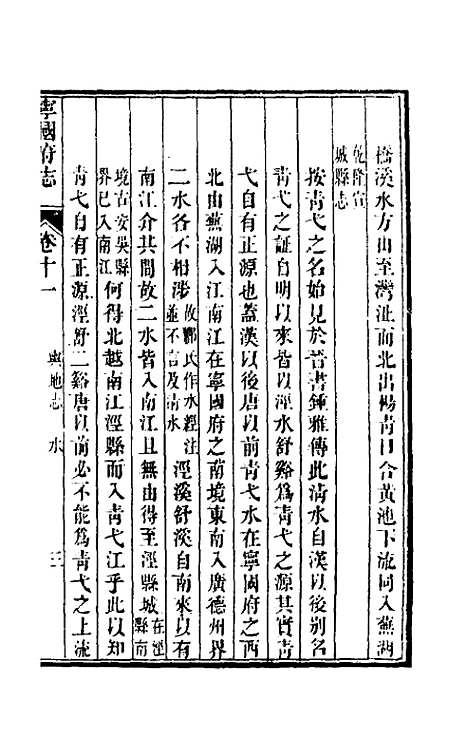 橋溪水方山至灣沚而北出楊青口合黃池下流同入蕪湖
乾隆宣
城縣志
按靑弋之名始見於晉書鍾雅傳此淸水自漢以後別名
靑弋之証自明以來皆以涇水舒谿爲靑弋之源其實靑
弋自有正源也蓋漢以後唐以前靑弋水在寧國府之西
北由蕪湖入江南江在寧國府之南境東南入廣德州界
二水各不相涉故酈氏作水經注並不言及淸水涇溪舒溪自南來以有
南江介其間故二水皆入南江且無由得至涇縣城在涇縣南
境古安吳縣界已入南江何得北越南江涇縣而入靑弋江乎此以知
靑弋自有正源涇舒二谿唐以前必不能爲靑弋之上流
寧國府志
卷十一
輿地志
水
三